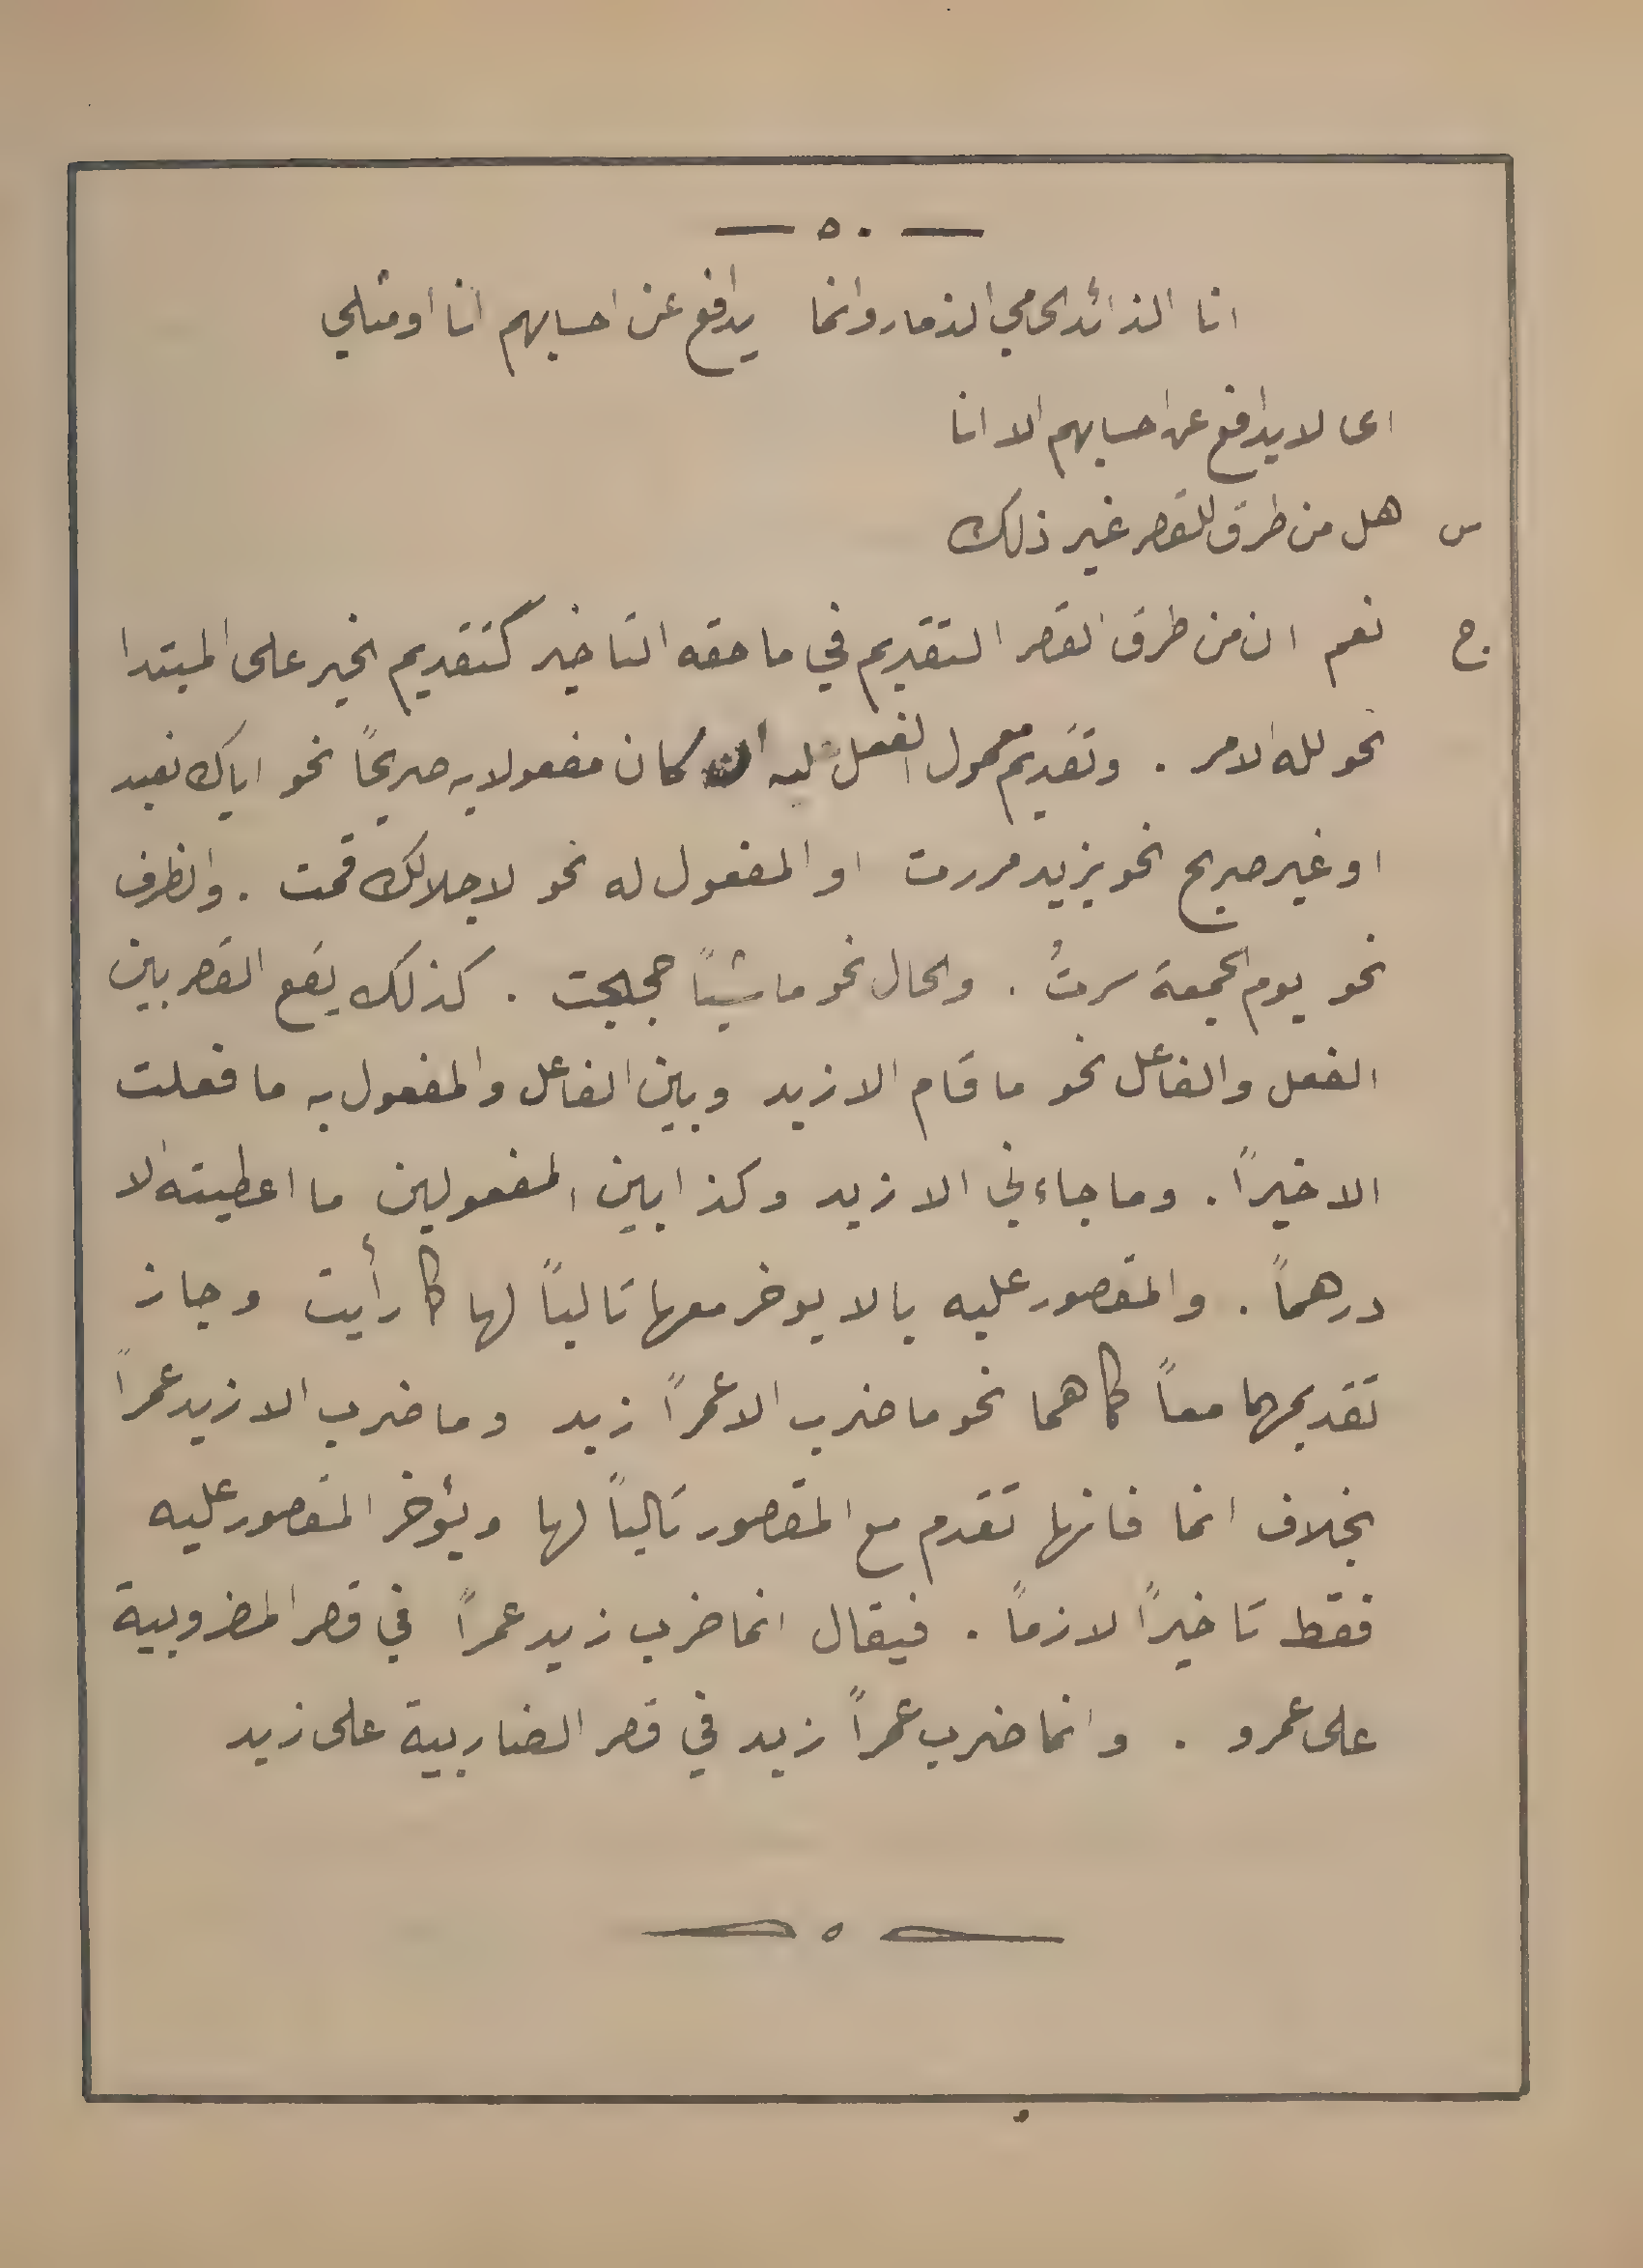 — ٥٠ —
انا الذائد الحامي الذمار وانما يدافع عن احسابهم انا او مثلي
اى لا يدافع عن احسابهم الا انا
س هل من طرق للقصر غير ذلك
ج نعم ان من طرق القصر التقديم في ما حقه التاخير كتقديم الخبر على المبتدا
نحو لله الامر . وتقديم معمول الفعل عليه ان كان مفعولا به صريحًا نحو اياك نعبد
او غير صريح نحو بزيد مررت او المفعول له نحو لاجلالك قمت . والظرف
نحو يوم الجمعة سرتُ . والحال نحو ماشيًا حججت . كذلك يقع القصر بين
الفعل والفاعل نحو ما قام الا زيد وبين الفاعل والمفعول به ما فعلت
الا خيرًا . وما جاءني الا زيد وكذا بين المفعولين ما اعطيته الا
درهمًا . والمقصور عليه بالا يوخر معها تاليًا لها كما رأيت وجاز
تقديمهما معًا كما هما نحو ما ضرب الا عمرًا زيد وما ضرب الا زيد عمرًا
بخلاف انما فانها تقدم مع المقصور تاليًا لها ويؤخر المقصور عليه
فقط تاخيرًا لازمًا . فيقال انما ضرب زيد عمرًا في قصر المضروبية
على عمرو . وانما ضرب عمرًا زيد في قصر الضاربية على زيد